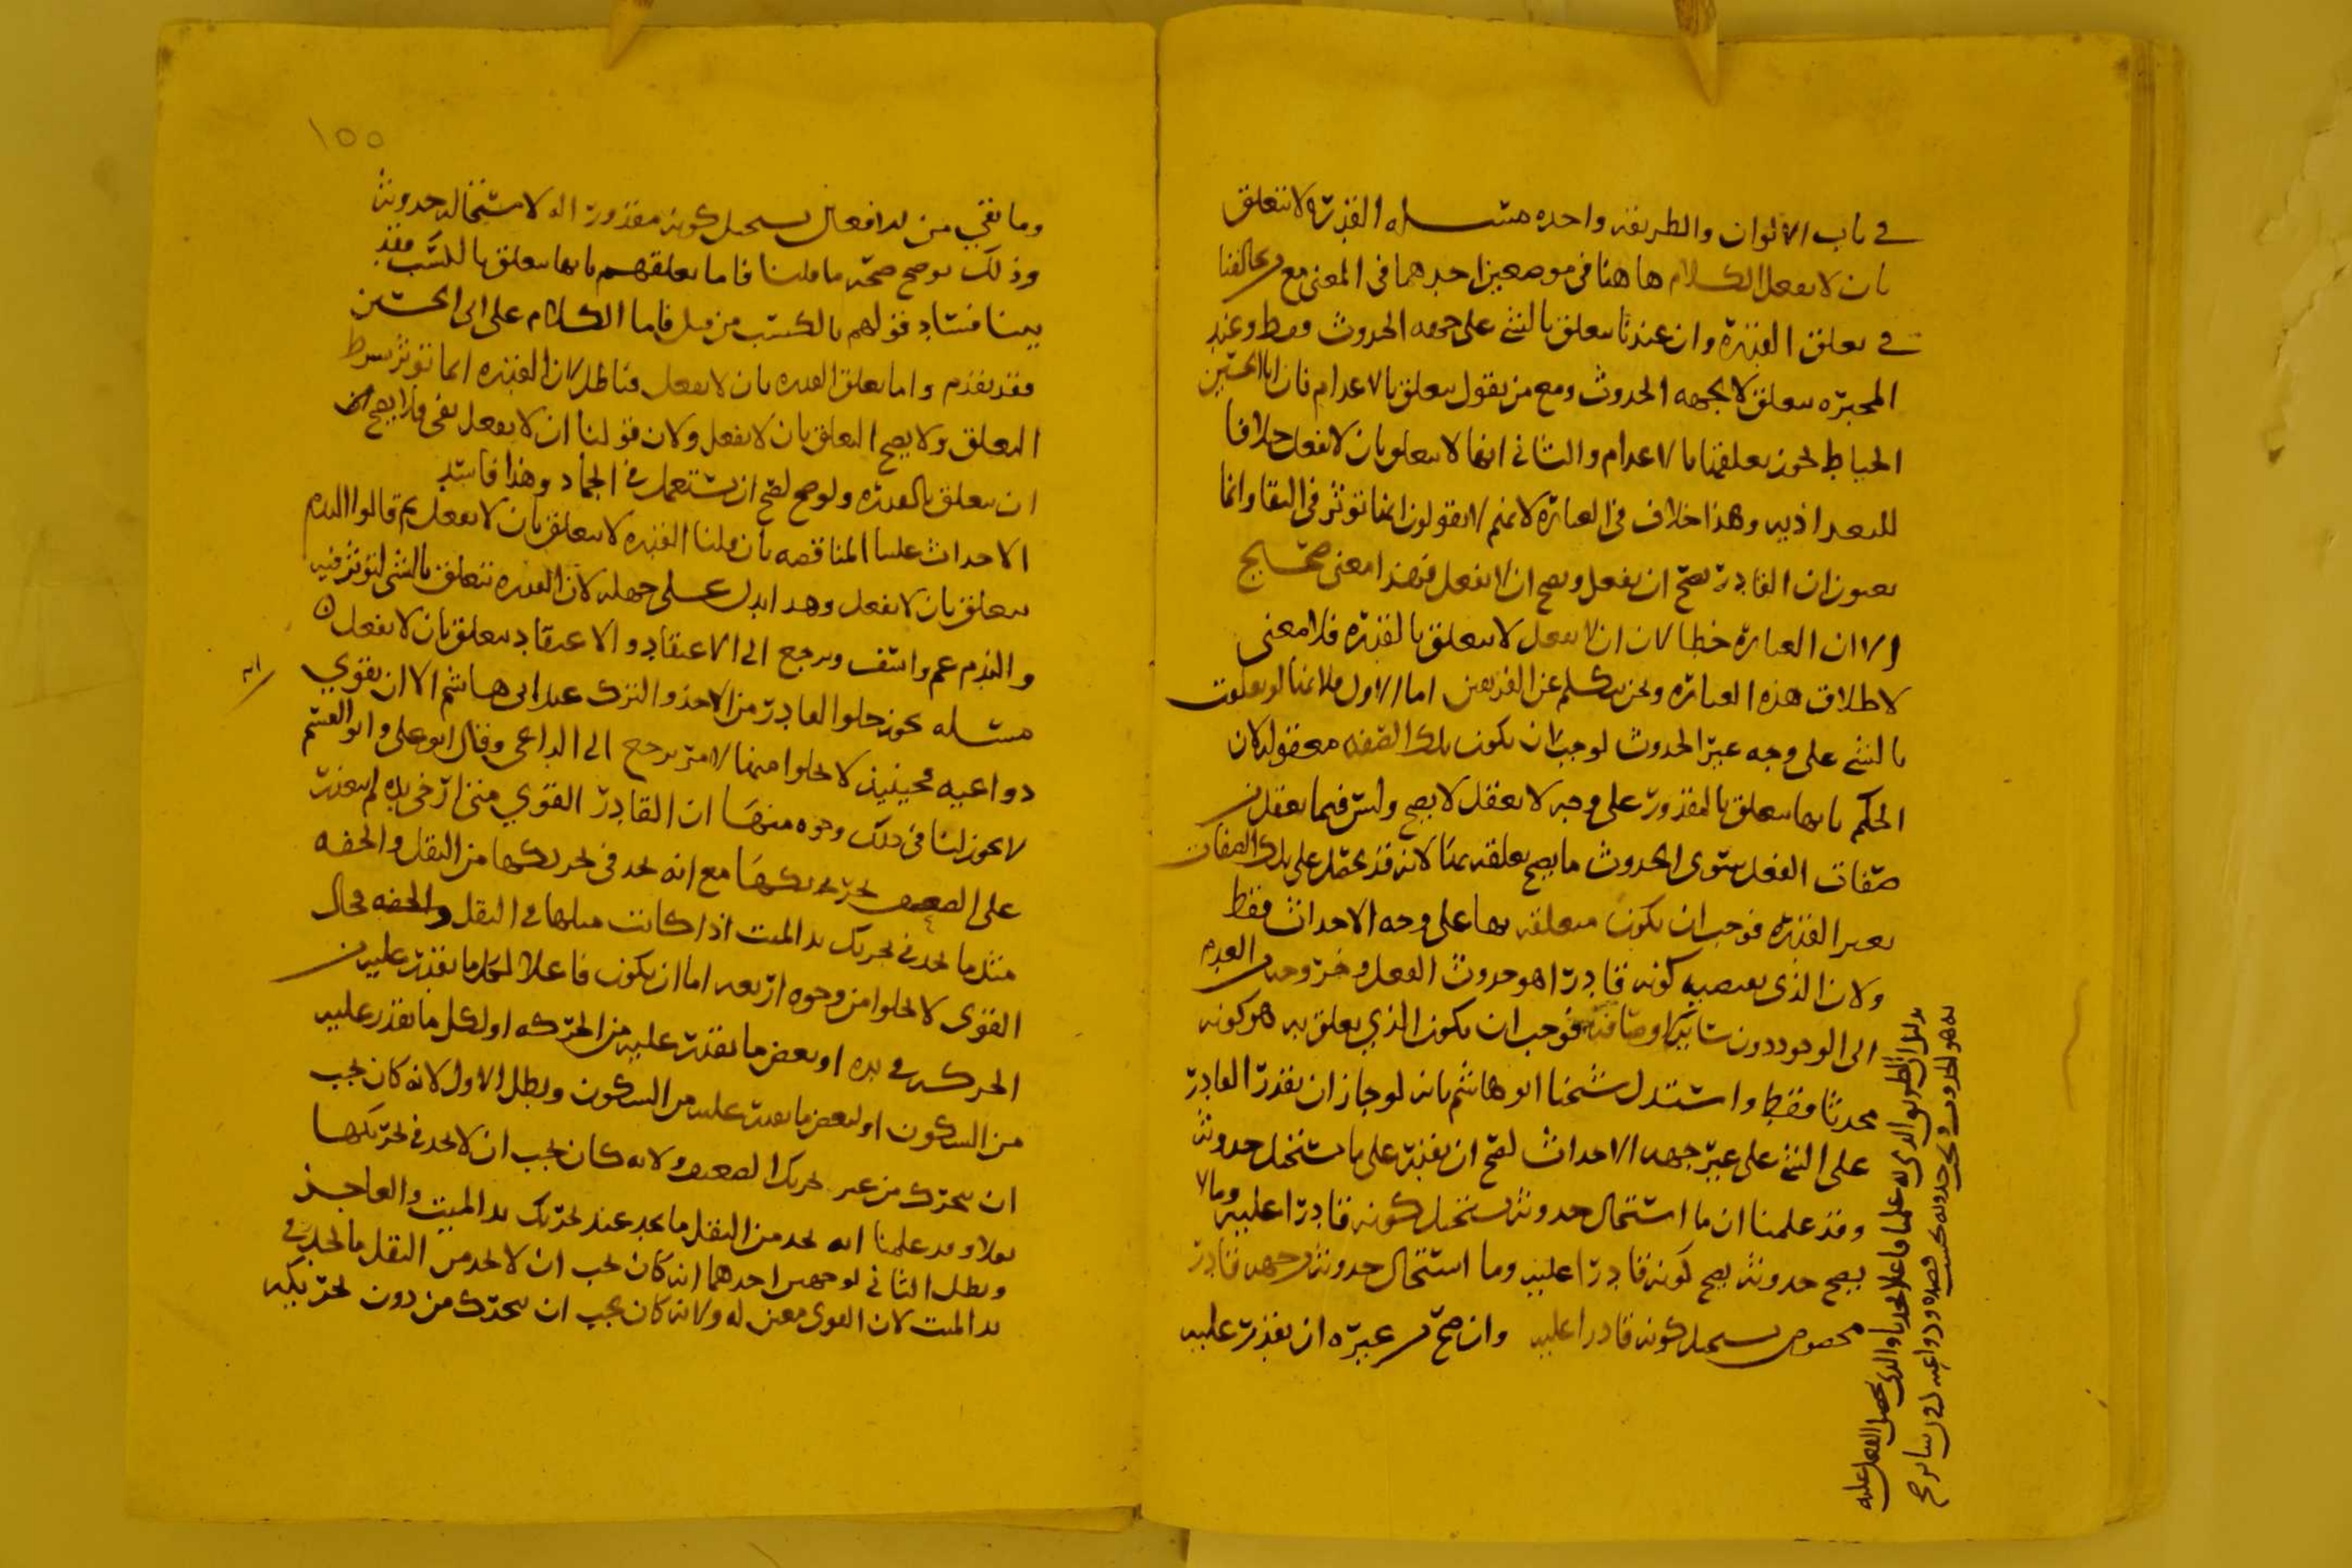 في باب الالوان والطريقه واحده مسله القدره لا تتعلق
بان لا يفعل الكلام هاهنا في موضعين احدهما في المعنى مع مخالفنا
في تعلق القدره وان عندنا تتعلق بالشي على جهه الحدوث فقط وعند
المجبره تتعلق لا بجهه الحدوث ومع من يقول تتعلق بالاعدام فان ابا الحسين
الخياط يجوز تعلقها بالاعدام والثاني انها لا تتعلق بان لا يفعل خلافا
للبغداذيه وهذا خلاف في العباره لانهم لا يقولون انها توثر في البقا وانما
يعنون ان القادر يصح ان يفعل ويصح ان لا يفعل فهذا معنى صحيح
الا ان العباره خطا لان ان لا يفعل لا يتعلق بالقدره فلا معنى
لاطلاق هذه العباره ونحن نتكلم عن الفريقين اما الاول فلانها لو تعلقت
بالشي على وجه غير الحدوث لوجب ان يكون تلك الصفه معقوله لان
الحكم بانها تتعلق بالمقدور على وجه لا يعقل لا يصح وليس فيما يعقل من
صفات الفعل سوى الحدوث ما يصح تعلقه بها لانه قد يحصل على تلك الصفات
بغير القدره فوجب ان يكون متعلقه بها على وجه الاحداث فقط
ولان الذي يقتضيه كونه قادرا هو حدوث الفعل وخروجه من العدم
الى الوجود دون سائر اوصافه فوجب ان يكون الذي يعلق به هو كونه
محدثا فقط واستدل شيخنا ابو هاشم بانه لو جاز ان يقدر القادر
على الشي على غير جهه الاحداث لصح ان يقدر على ما يستحيل حدوثه
وقد علمنا ان ما استحال حدوثه يستحيل كونه قادرا عليه وما لا
يصح حدوثه يصح كونه قادرا عليه وما استحال حدوثه من جهه قادر
مخصوص يستحيل كونه قادرا عليه وان صح من غيره ان يقدر عليه
وما بقي من الافعال يستحيل كونه مقدورا له لاستحاله حدوثه
وذلك يوضح صحه ما قلنا فاما تعلقهم بانها تتعلق بالكسب فقد
بينا فساد قولهم بالكسب من قبل فاما الكلام على ابي الحسين
فقد تقدم واما تعلق القدره بان لا يفعل فباطل لان القدره انما توثر بشرط
التعلق ولا يصح التعلق بان لا يفعل ولان قولنا ان لا يفعل نفي فلا يصح
ان يتعلق بالقدره ولو صح لصح ان يستعمل في الجماد وهذا فاسد
الاحداث علينا المناقضه بان قلنا القدره لا تتعلق بان لا يفعل ثم قالوا الذم
يتعلق بان لا يفعل وهذا يدل على جهله لان القدره تتعلق بالشي لتوثر فيه
والذم غم واسف ويرجع الى الاعتقاد والاعتقاد يتعلق بان لا يفعل
مسله يجوز خلو القادر من الاخذ والترك عند ابي هاشم الا ان يقوي
دواعيه فحينيذ لا يخلوا منهما لامر يرجع الى الداعي وقال ابو علي وابو القسم
لا يجوز لنا في ذلك وجوه منها ان القادر القوي متى ارخى يده لم يتعذر
على الضعيف تحريكها مع انه يجد في تحريكها من الثقل والخفه
مثل ما يجد في تحريك يد الميت اذا كانت مثلها في الثقل والخفه فحال
القوى لا يخلوا من وجوه اربعه اما ان يكون فاعلا لكل ما يقدر عليه من
الحركه في يده او بعض ما يقدر عليه من الحركه او لكل ما يقدر عليه
من السكون او لبعض ما يقدر عليه من السكون وبطل الاول لانه كان يجب
ان يتحرك من غير تحريك الضعيف ولانه كان يجب ان لا يجد في تحريكها
ثقلا وقد علمنا انه يجد من الثقل ما يجد عند تحريك يد الميت والعاجز
وبطل الثاني لوجهين احدهما انه كان يجب ان لا يجد من الثقل ما يجد في
يد الميت لان القوى معين له ولانه كان يجب ان يتحرك من دون تحريكه